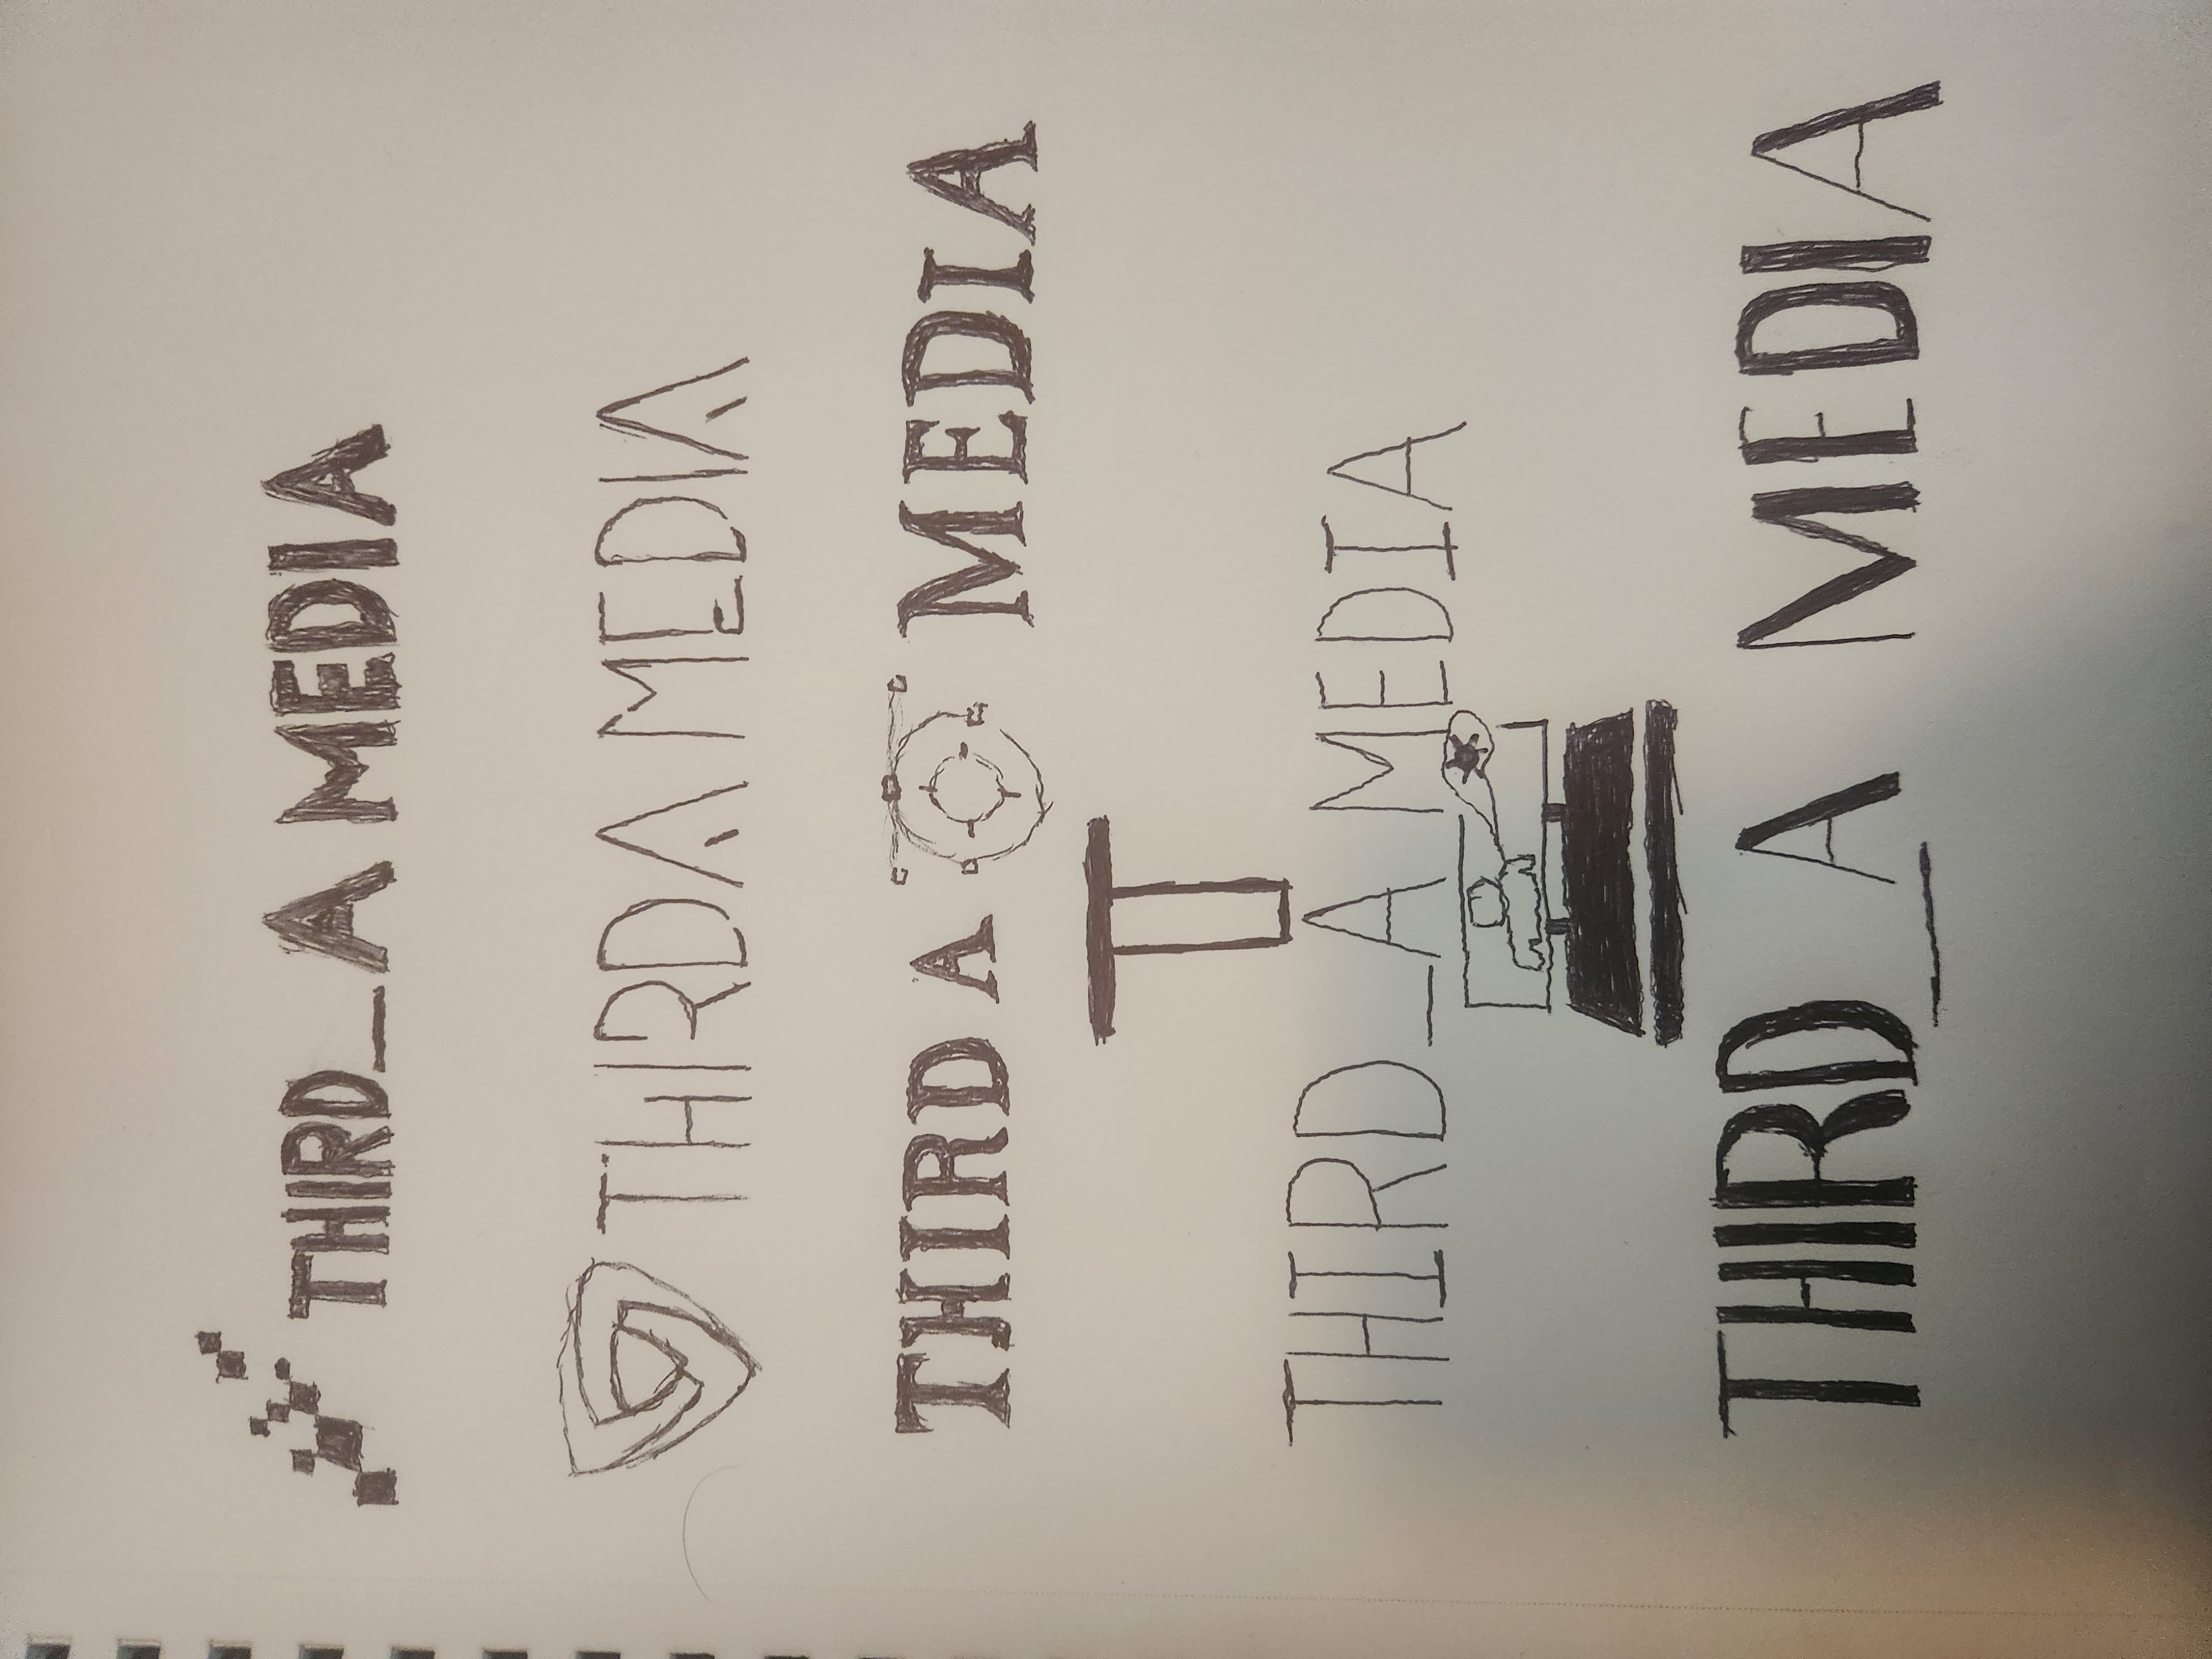 THIRD_A MEDIA
THIRDA MEDIA
THIRD A MEDIA
T
THIRD_A MEDIA
THIRD_A MEDIA